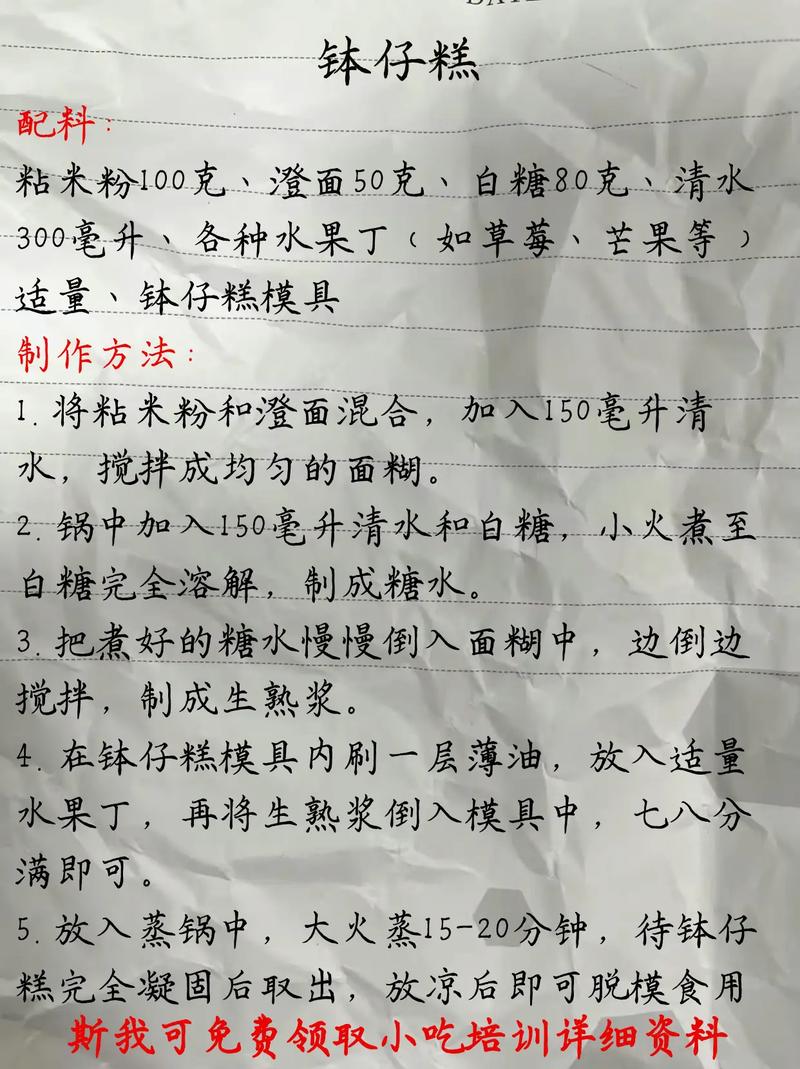 钵仔糕
配料：
粘米粉100克、澄面50克、白糖80克、清水
300毫升、各种水果丁（如草莓、芒果等）
适量、钵仔糕模具
制作方法：
1. 将粘米粉和澄面混合，加入150毫升清
水，搅拌成均匀的面糊。
2. 锅中加入150毫升清水和白糖，小火煮至
白糖完全溶解，制成糖水。
3. 把煮好的糖水慢慢倒入面糊中，边倒边
搅拌，制成生熟浆。
4. 在钵仔糕模具内刷一层薄油，放入适量
水果丁，再将生熟浆倒入模具中，七八分
满即可。
5. 放入蒸锅中，大火蒸15-20分钟，待钵仔
糕完全凝固后取出，放凉后即可脱模食用
斯我可免费领取小吃培训详细资料